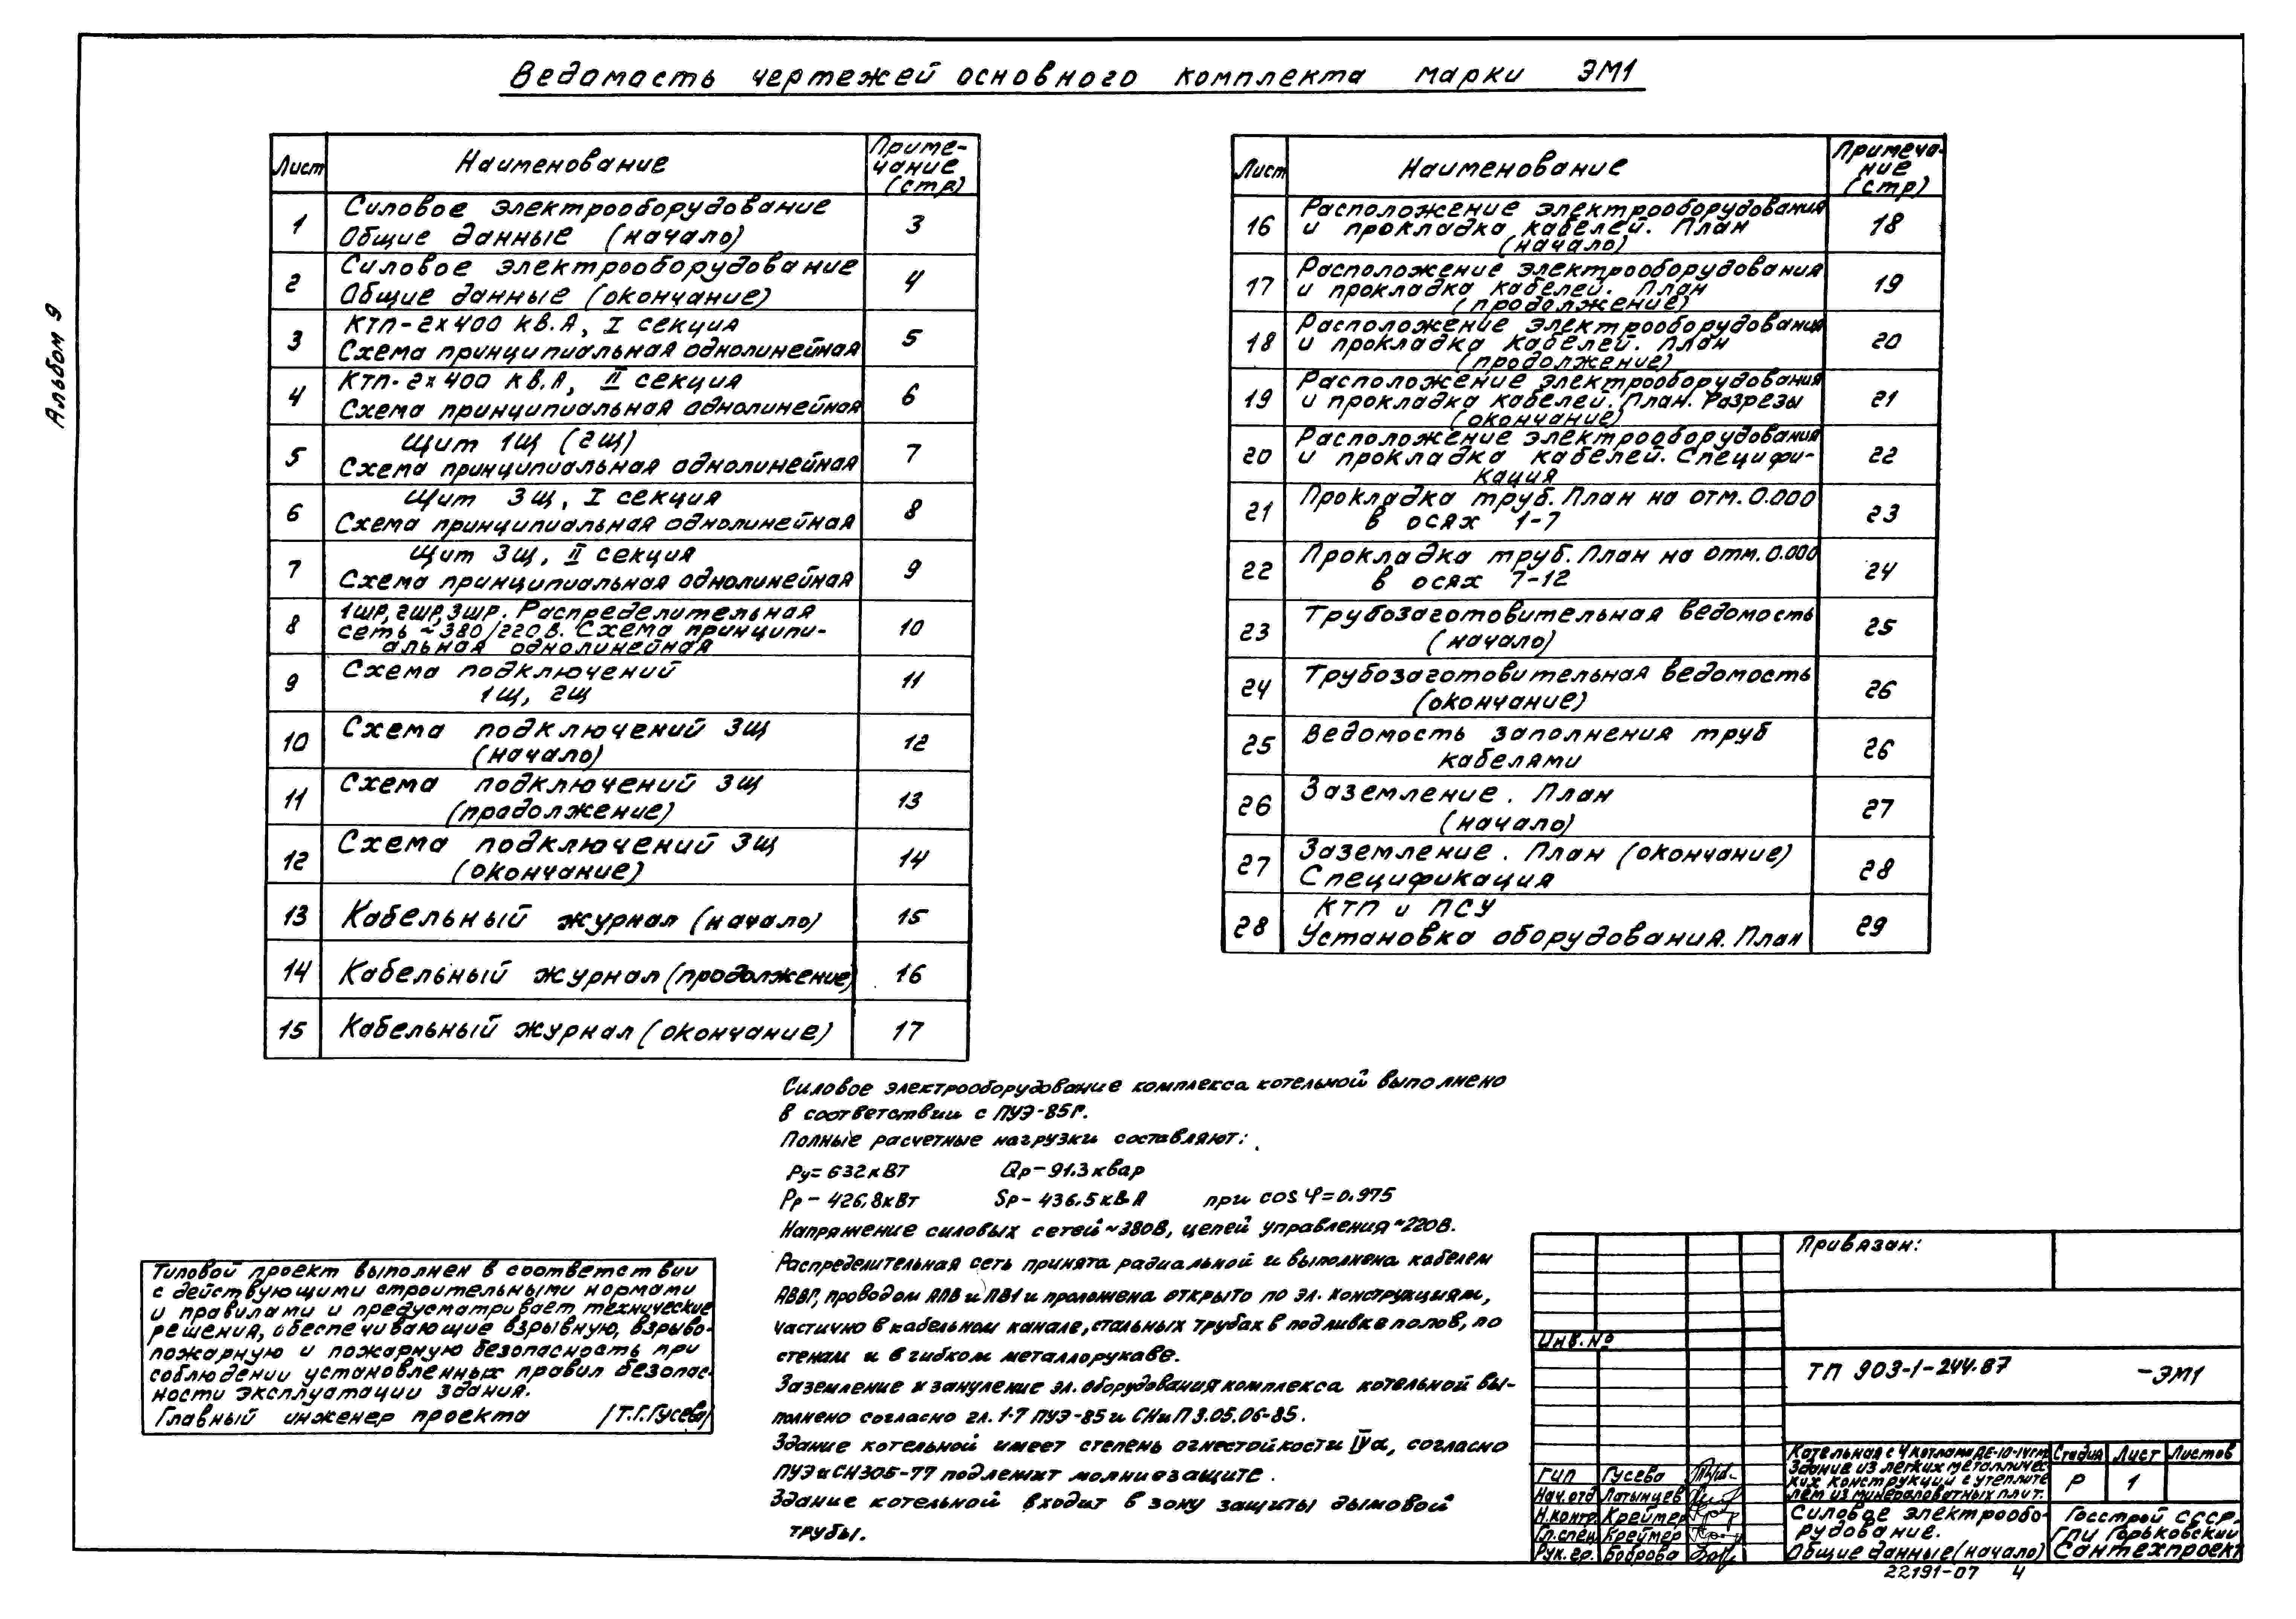 Альбом 9
Ведомасть чертежей основного комплекта марки ЭМ1
Лист Наименование Приме-
чание
(стр)
1 Силовое электрооборудование 3
Общие данные (начало)
2 Силовое электрооборудование 4
Общие данные (окончание)
3 КТП-2х400 кв.А, I секция 5
Схема принципиальная однолинейная
4 КТП-2х400 кв.А, II секция 6
Схема принципиальная однолинейная
5 Щит 1Щ (2Щ) 7
Схема принципиальная однолинейная
6 Щит 3Щ, I секция 8
Схема принципиальная однолинейная
7 Щит 3Щ, II секция 9
Схема принципиальная однолинейная
8 1ШР, 2ШР, 3ШР. Распределительная 10
сеть ~380/220В. Схема принципи-
альная однолинейная
9 Схема подключений 11
1Щ, 2Щ
10 Схема подключений 3Щ 12
(начало)
11 Схема подключений 3Щ 13
(продолжение)
12 Схема подключений 3Щ 14
(окончание)
13 Кабельный журнал (начало) 15
14 Кабельный журнал (продолжение) 16
15 Кабельный журнал (окончание) 17
Лист Наименование Примеча-
ние
(стр)
16 Расположение электрооборудования 18
и прокладка кабелей. План
(начало)
17 Расположение электрооборудования 19
и прокладка кабелей. План
(продолжение)
18 Расположение электрооборудования 20
и прокладка кабелей. План
(продолжение)
19 Расположение электрооборудования 21
и прокладка кабелей. План. Разрезы
(окончание)
20 Расположение электрооборудования 22
и прокладка кабелей. Специфи-
кация
21 Прокладка труб. План на отм. 0.000 23
в осях 1-7
22 Прокладка труб. План на отм. 0.000 24
в осях 7-12
23 Трубозаготовительная ведомость 25
(начало)
24 Трубозаготовительная ведомость 26
(окончание)
25 Ведомость заполнения труб 26
кабелями
26 Заземление. План 27
(начало)
27 Заземление. План (окончание) 28
Спецификация
28 КТП и ПСУ 29
Установка оборудования. План
Силовое электрооборудование комплекса котельной выполнено
в соответствии с ПУЭ-85г.
Полные расчетные нагрузки составляют:
Ру= 632кВт Qр-91.3 квар
Рр- 426,8кВт Sр- 436.5 кВА при cos φ=0.975
Напряжение силовых сетей ~380В, цепей управления ~220В.
Распределительная сеть принята радиальной и выполнена кабелем
АВВГ, проводом АПВ и ПВ1 и проложена открыто по эл. конструкциям,
частично в кабельном канале, стальных трубах в подливке полов, по
стенам и в гибком металлорукаве.
Заземление и зануление эл. оборудования комплекса котельной вы-
полнено согласно гл. 1-7 ПУЭ-85 и СНиП 3.05.06-85.
Здание котельной имеет степень огнестойкости IVа, согласно
ПУЭ и СН305-77 подлежит молниезащите.
Здание котельной входит в зону защиты дымовой
трубы.
Типовой проект выполнен в соответствии
с действующими строительными нормами
и правилами и предусматривает технические
решения, обеспечивающие взрывную, взрыво-
пожарную и пожарную безопасность при
соблюдении установленных правил безопас-
ности эксплуатации здания.
Главный инженер проекта /Т.Г.Гусева/
Привязан:
Инв. №
ТП 903-1-244.87 -ЭМ1
Котельная с 4 котлами ДЕ-10-14гм
Здание из легких металличес-
ких конструкций с утеплите
лем из минераловатных плит.
Стадия Лист Листов
Р 1
ГИП Гусева
Нач.отд Латынцев
Н.контр Креймер
Гл.спец Креймер
Рук. гр. Боброва
Силовое электрообо-
рудование.
Общие данные (начало)
Госстрой СССР
ГПИ Горьковский
Сантехпроект
22191-07 4